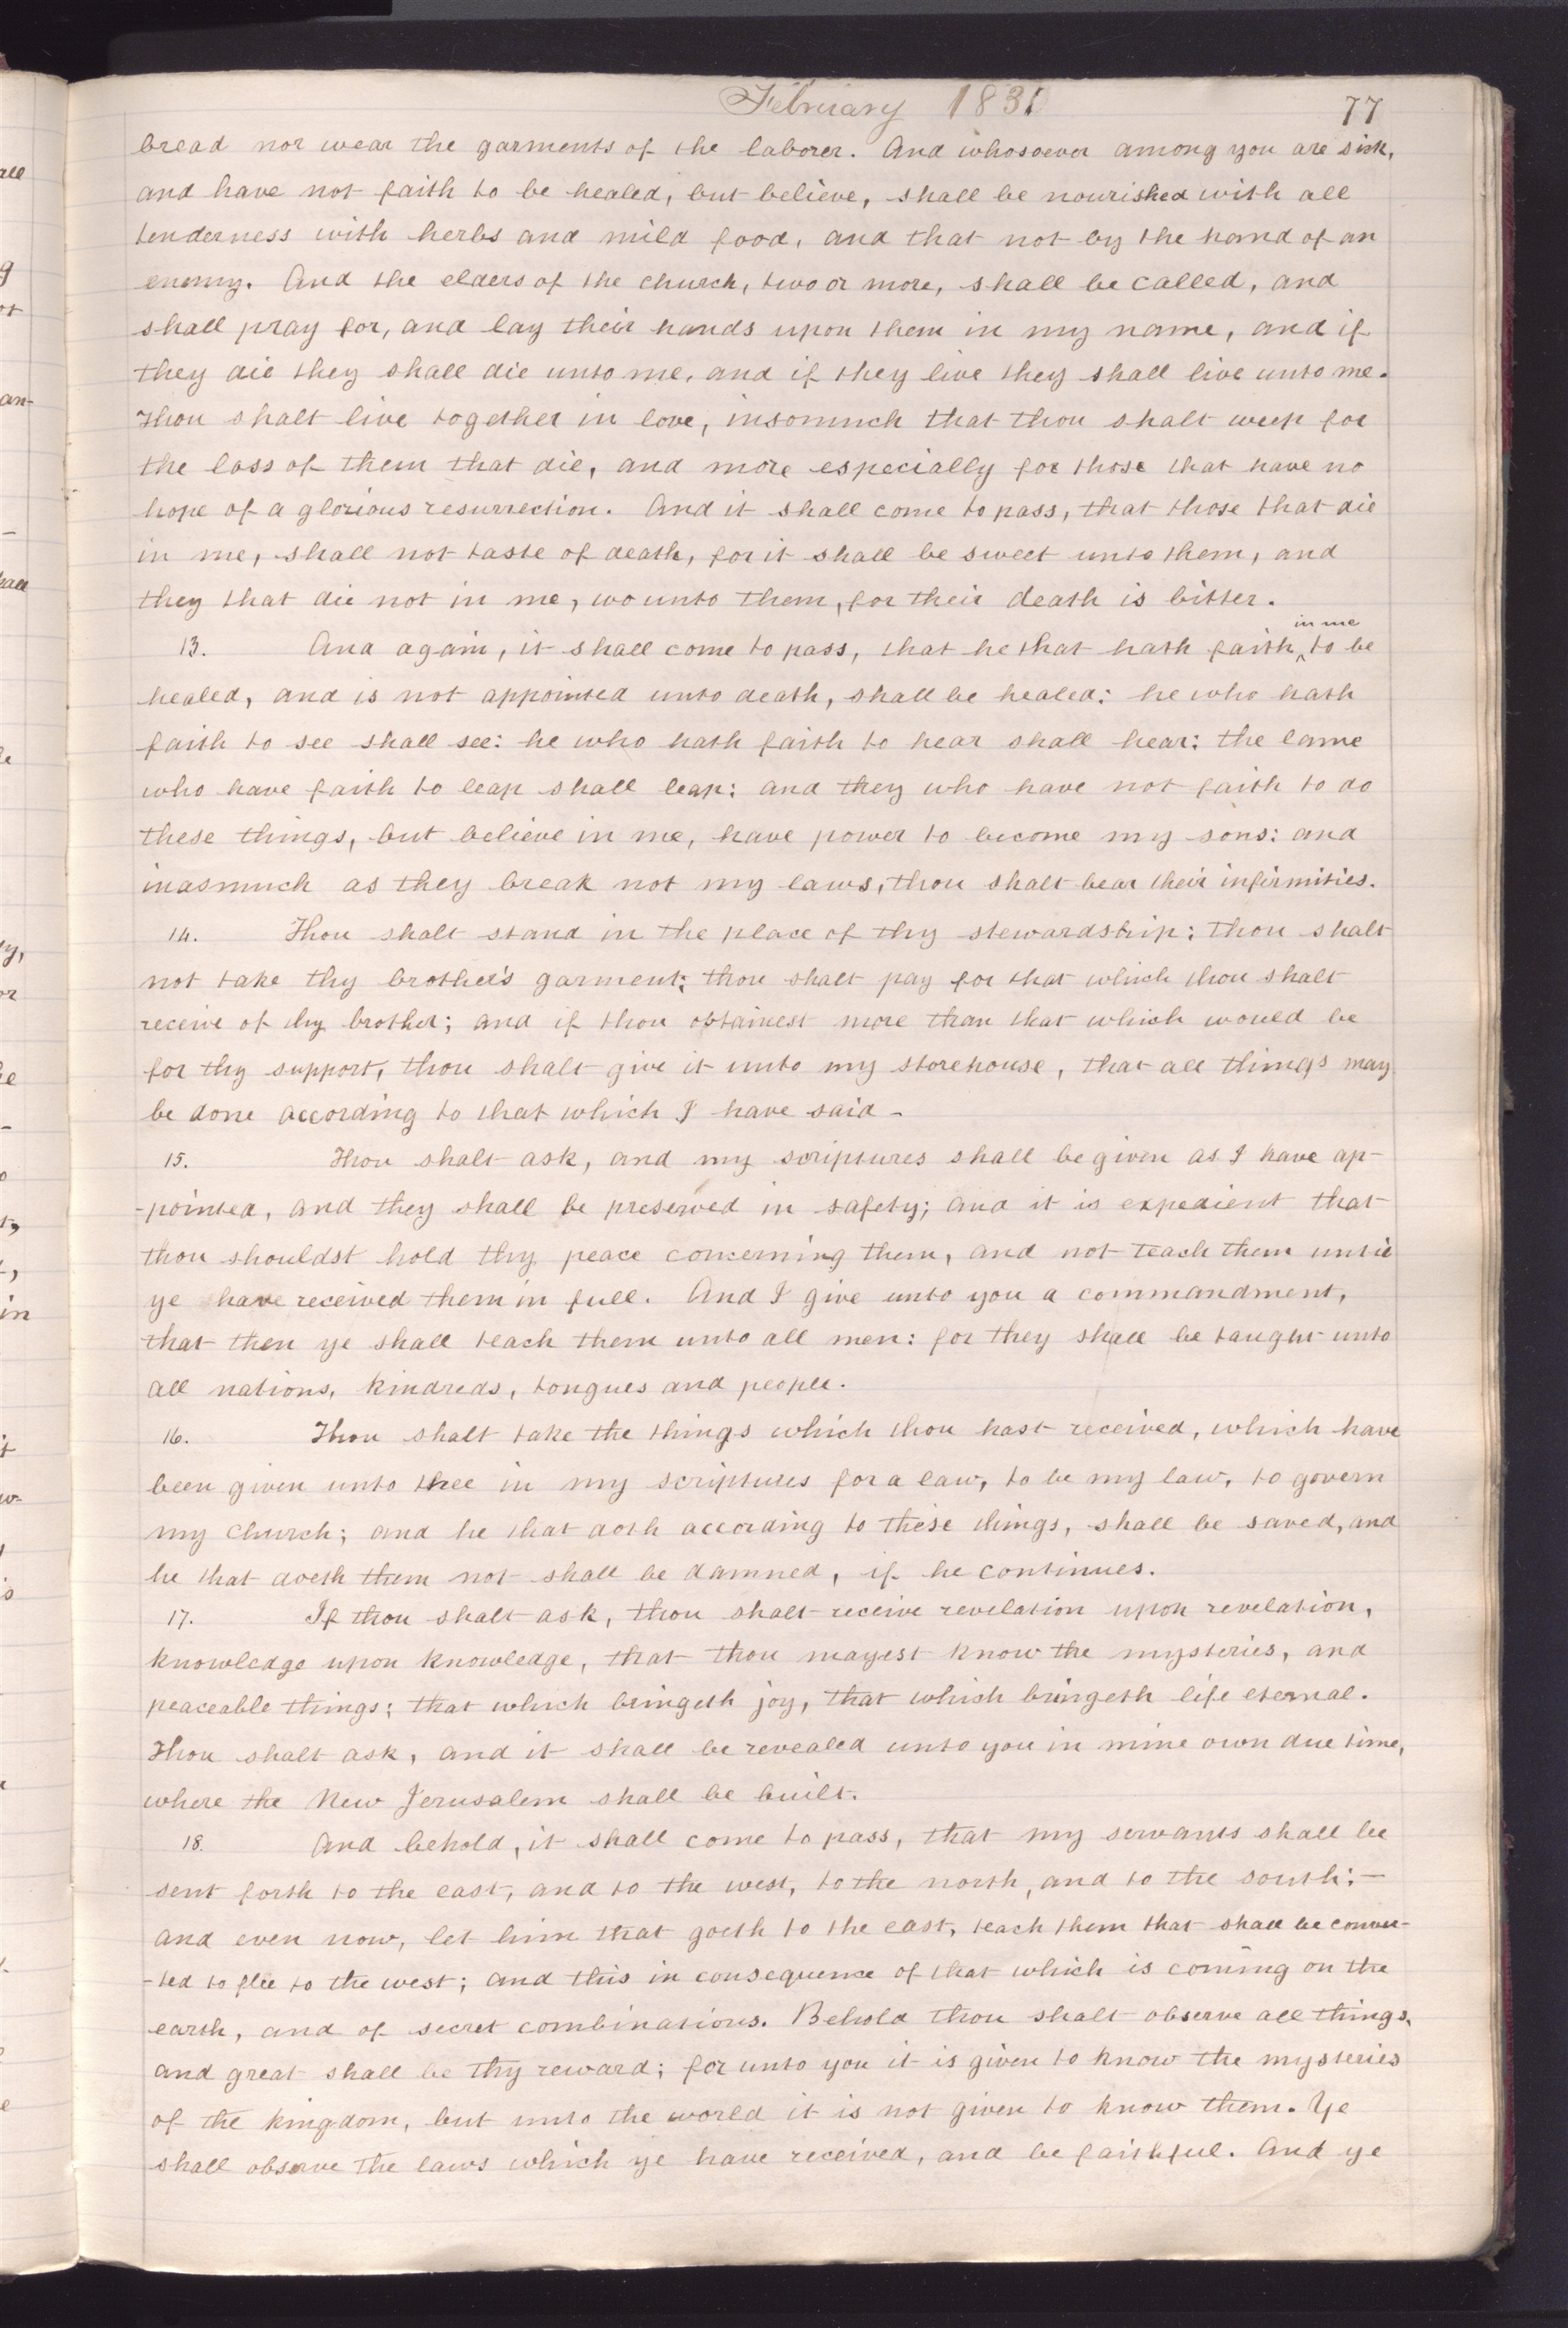 February 1831
77
bread nor wear the garments of the laborer. And whosoever among you are sick,
and have not faith to be healed, but believe, shall be nourished with all
tenderness with herbs and mild food, and that not by the hand of an
enemy. And the elders of the church, two or more, shall be called, and
shall pray for, and lay their hands upon them in my name, and if
they die they shall die unto me, and if they live they shall live unto me.
Thou shalt live together in love, insomuch that thou shalt weep for
the loss of them that die, and more especially for those that have no
hope of a glorious resurrection. And it shall come to pass, that those that die
in me, shall not taste of death, for it shall be sweet unto them, and
they that die not in me, wo unto them, for their death is bitter.
13. And again, it shall come to pass, that he that hath faith ^in me to be
healed, and is not appointed unto death, shall be healed: he who hath
faith to see shall see: he who hath faith to hear shall hear: the lame
who have faith to leap shall leap: and they who have not faith to do
these things, but believe in me, have power to become my sons: and
inasmuch as they break not my laws, thou shalt bear their infirmities.
14. Thou shalt stand in the place of thy stewardship: thou shalt
not take thy brother's garment; thou shalt pay for that which thou shalt
receive of thy brother; and if thou obtainest more than that which would be
for thy support, thou shalt give it unto my storehouse, that all things may
be done according to that which I have said-
15. Thou shalt ask, and my scriptures shall be given as I have ap-
-pointed, and they shall be preserved in safety; and it is expedient that
thou shouldst hold thy peace concerning them, and not teach them until
ye have received them in full. And I give unto you a commandment,
that then ye shall teach them unto all men: for they shall be taught unto
all nations, kindreds, tongues and people.
16. Thou shalt take the things which thou hast received, which have
been given unto thee in my scriptures for a law, to be my law, to govern
my church; and he that doth according to these things, shall be saved, and
he that doeth them not shall be damned, if he continues.
17. If thou shalt ask, thou shalt receive revelation upon revelation,
knowledge upon knowledge, that thou mayest know the mysteries, and
peaceable things; that which bringeth joy, that which bringeth life eternal.
Thou shalt ask, and it shall be revealed unto you in mine own due time,
where the New Jerusalem shall be built.
18. And behold, it shall come to pass, that my servants shall be
sent forth to the east, and to the west, to the north, and to the south;—
and even now, let him that goeth to the east, teach them that shall be conver-
-ted to flee to the west; and this in consequence of that which is coming on the
earth, and of secret combinations. Behold thou shalt observe all things,
and great shall be thy reward; for unto you it is given to know the mysteries
of the kingdom, but unto the world it is not given to know them. Ye
shall observe the laws which ye have received, and be faithful. And ye